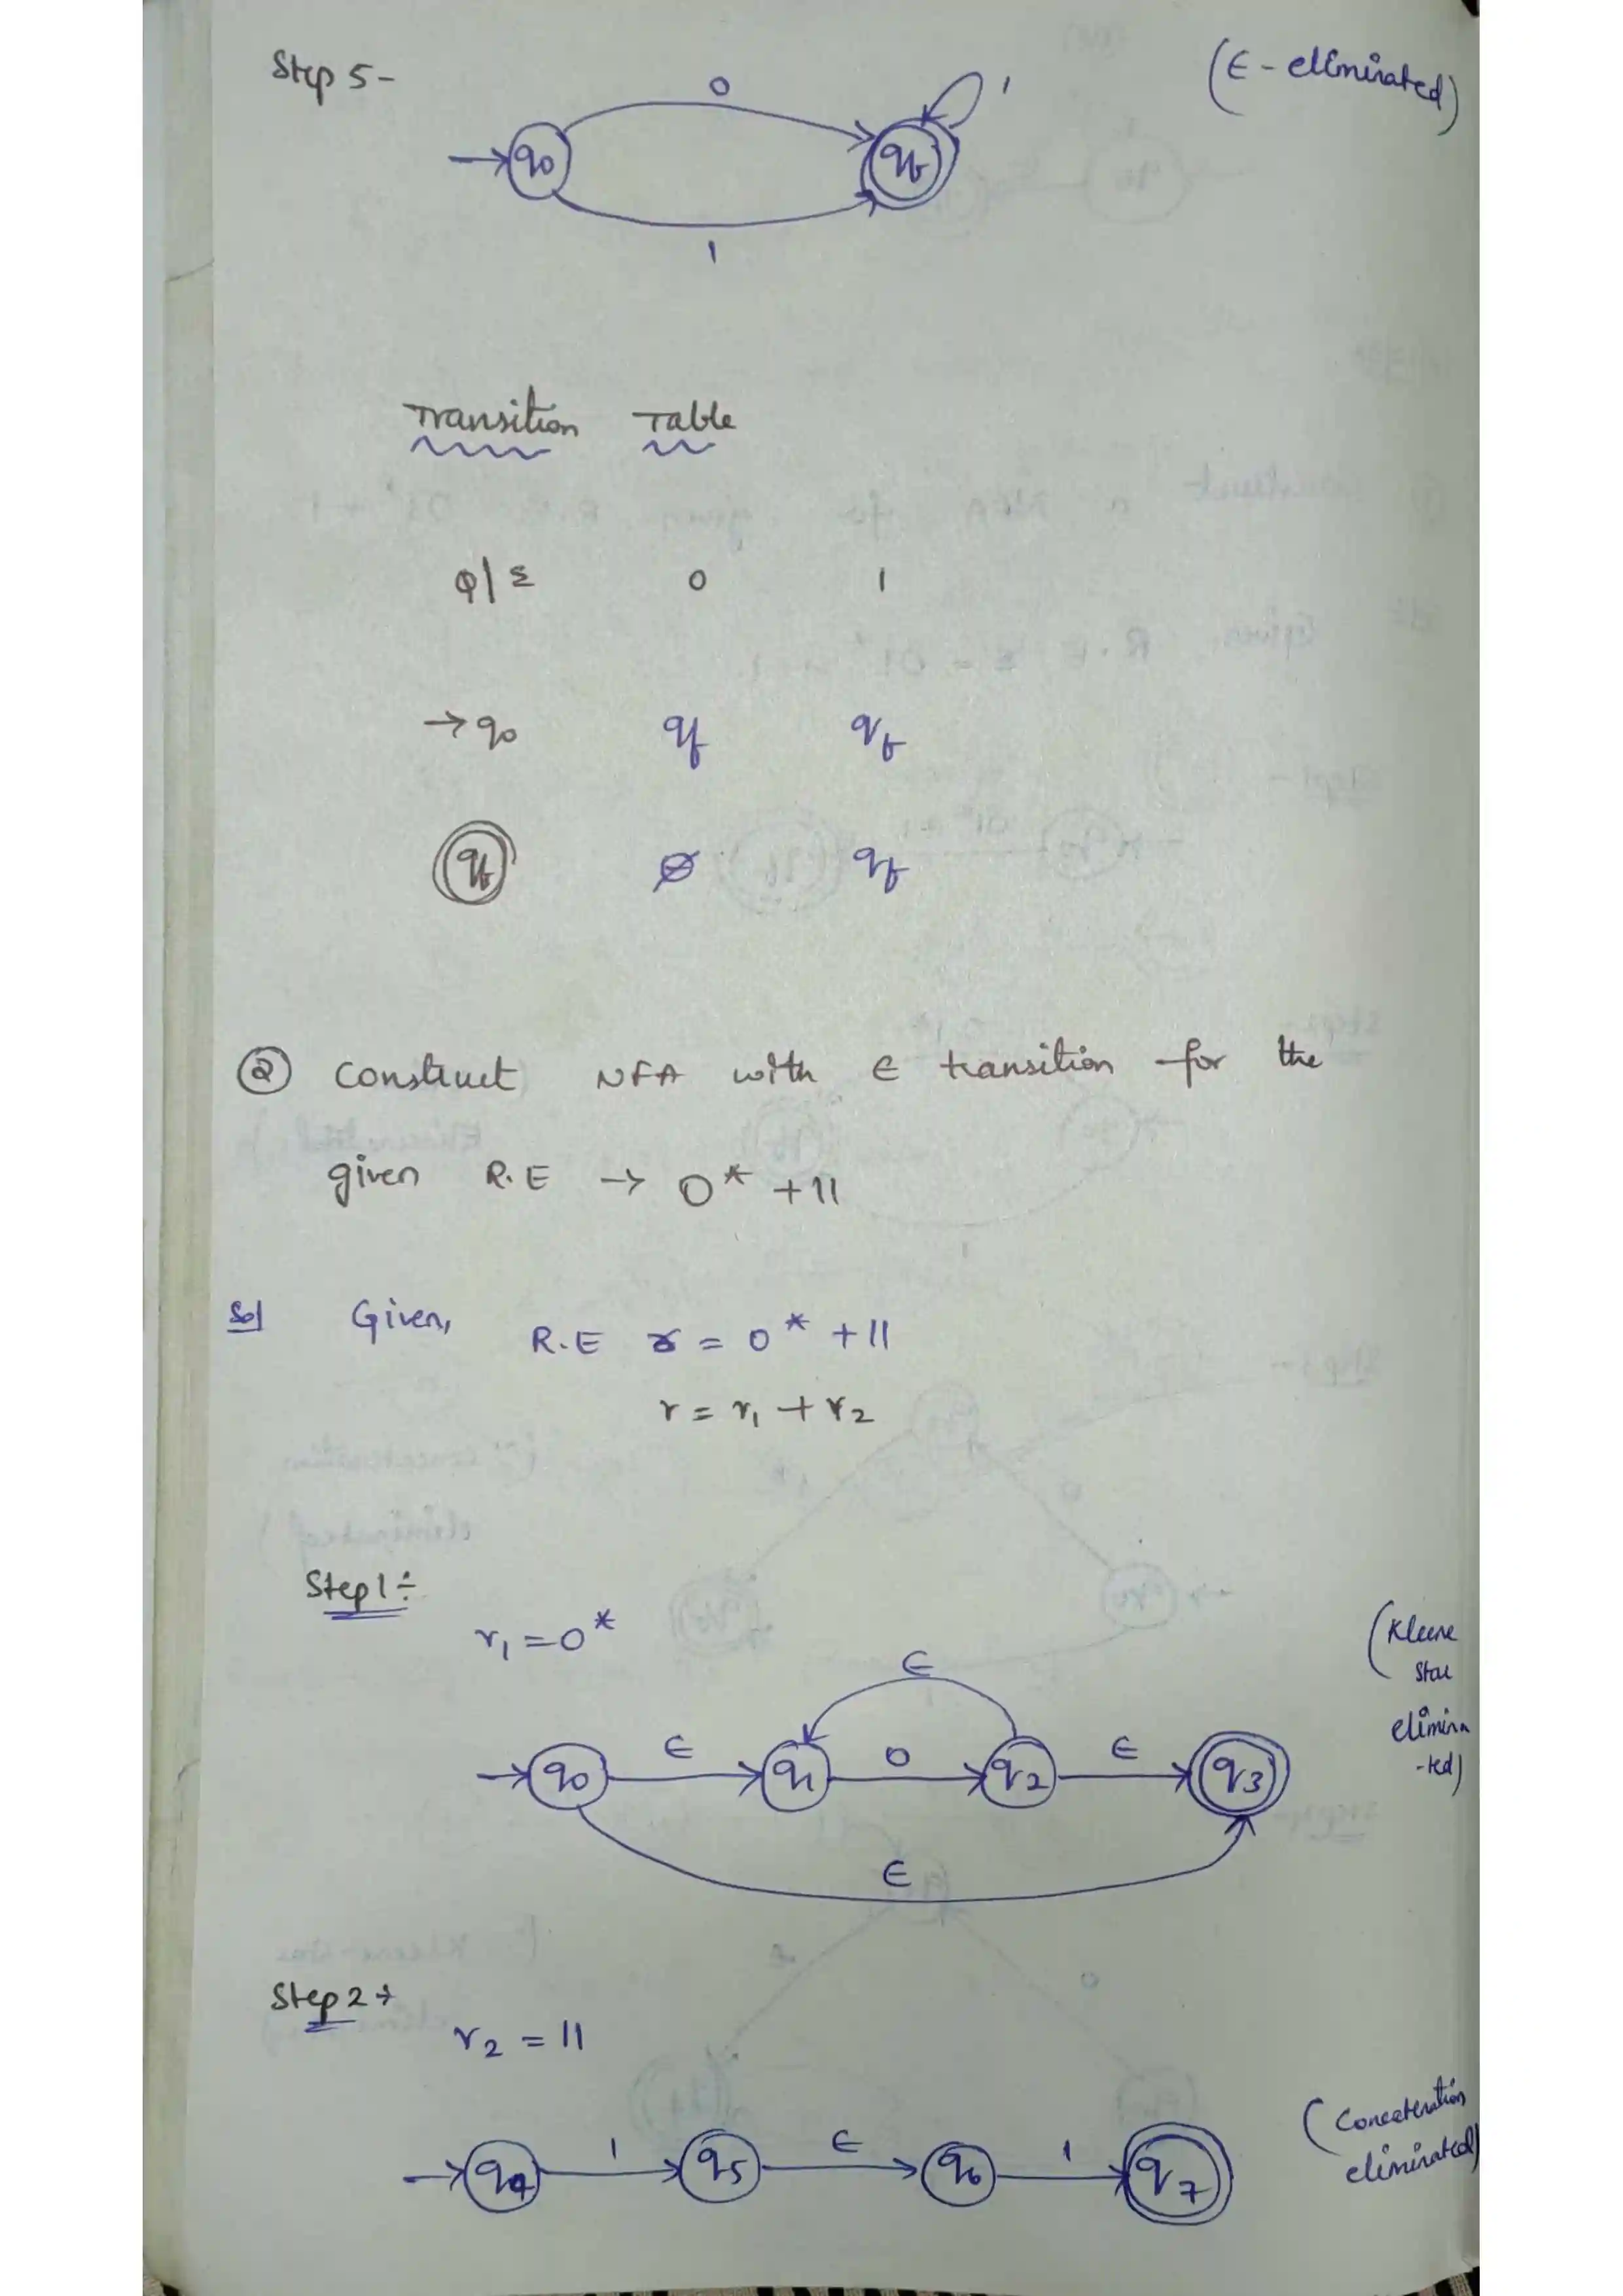 Step 5 -
(ϵ - eliminated)
0
1
→ q0
qf
1
Transition Table
Q|Σ 0 1
→ q0 qf qf
qf ∅ qf
② Construct NFA with ϵ transition for the
given R.E → 0* + 11
Sol Given, R.E r = 0* + 11
r = r1 + r2
Step 1 ÷
r1 = 0*
(Kleene
star
elimina
-ted)
ϵ
→ q0 ϵ q1 0 q2 ϵ q3
ϵ
Step 2 →
r2 = 11
(Concetenation
eliminated)
→ q4 1 q5 ϵ q6 1 q7